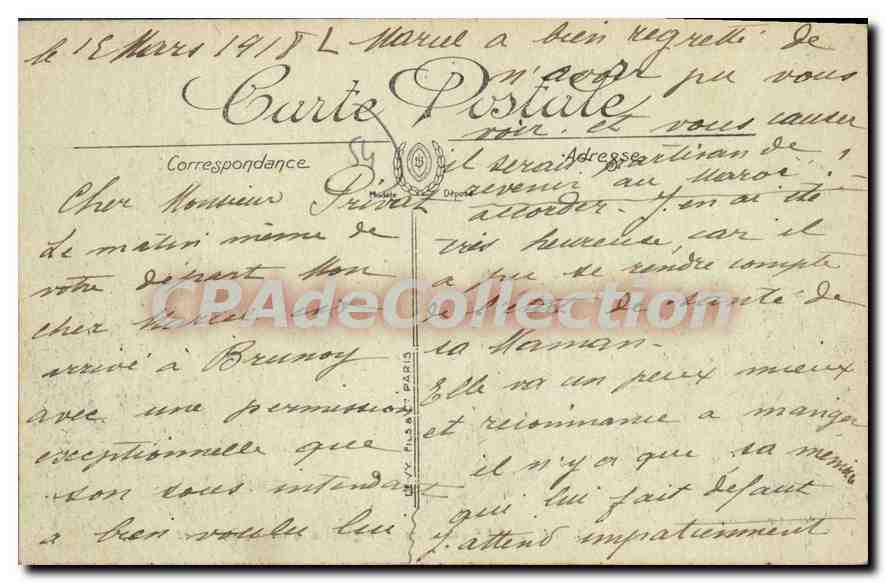 le 15 Mars 1918
Carte Postale
Correspondance
Adresse
54
Modèle Déposé
Cher Monsieur Privat
Le matin même de
votre départ Mon
cher Marcel est
arrivé à Brunoy
avec une permission
exceptionnelle que
son sous intendant
a bien voulu lui
accorder. J'en ai été
très heureuse, car il
a pu se rendre compte
de l'état de santé de
sa Maman.
Elle va un peux mieux
et recommence a manger
il n'y a que sa mémoire
qui lui fait défaut
J'attend impatiemment
Marcel a bien regretté de
n'avoir pu vous
voir et vous causer
il serait partisan de
revenir au Maroc !
LEVY FILS & Cie PARIS
CPAdeCollection.com